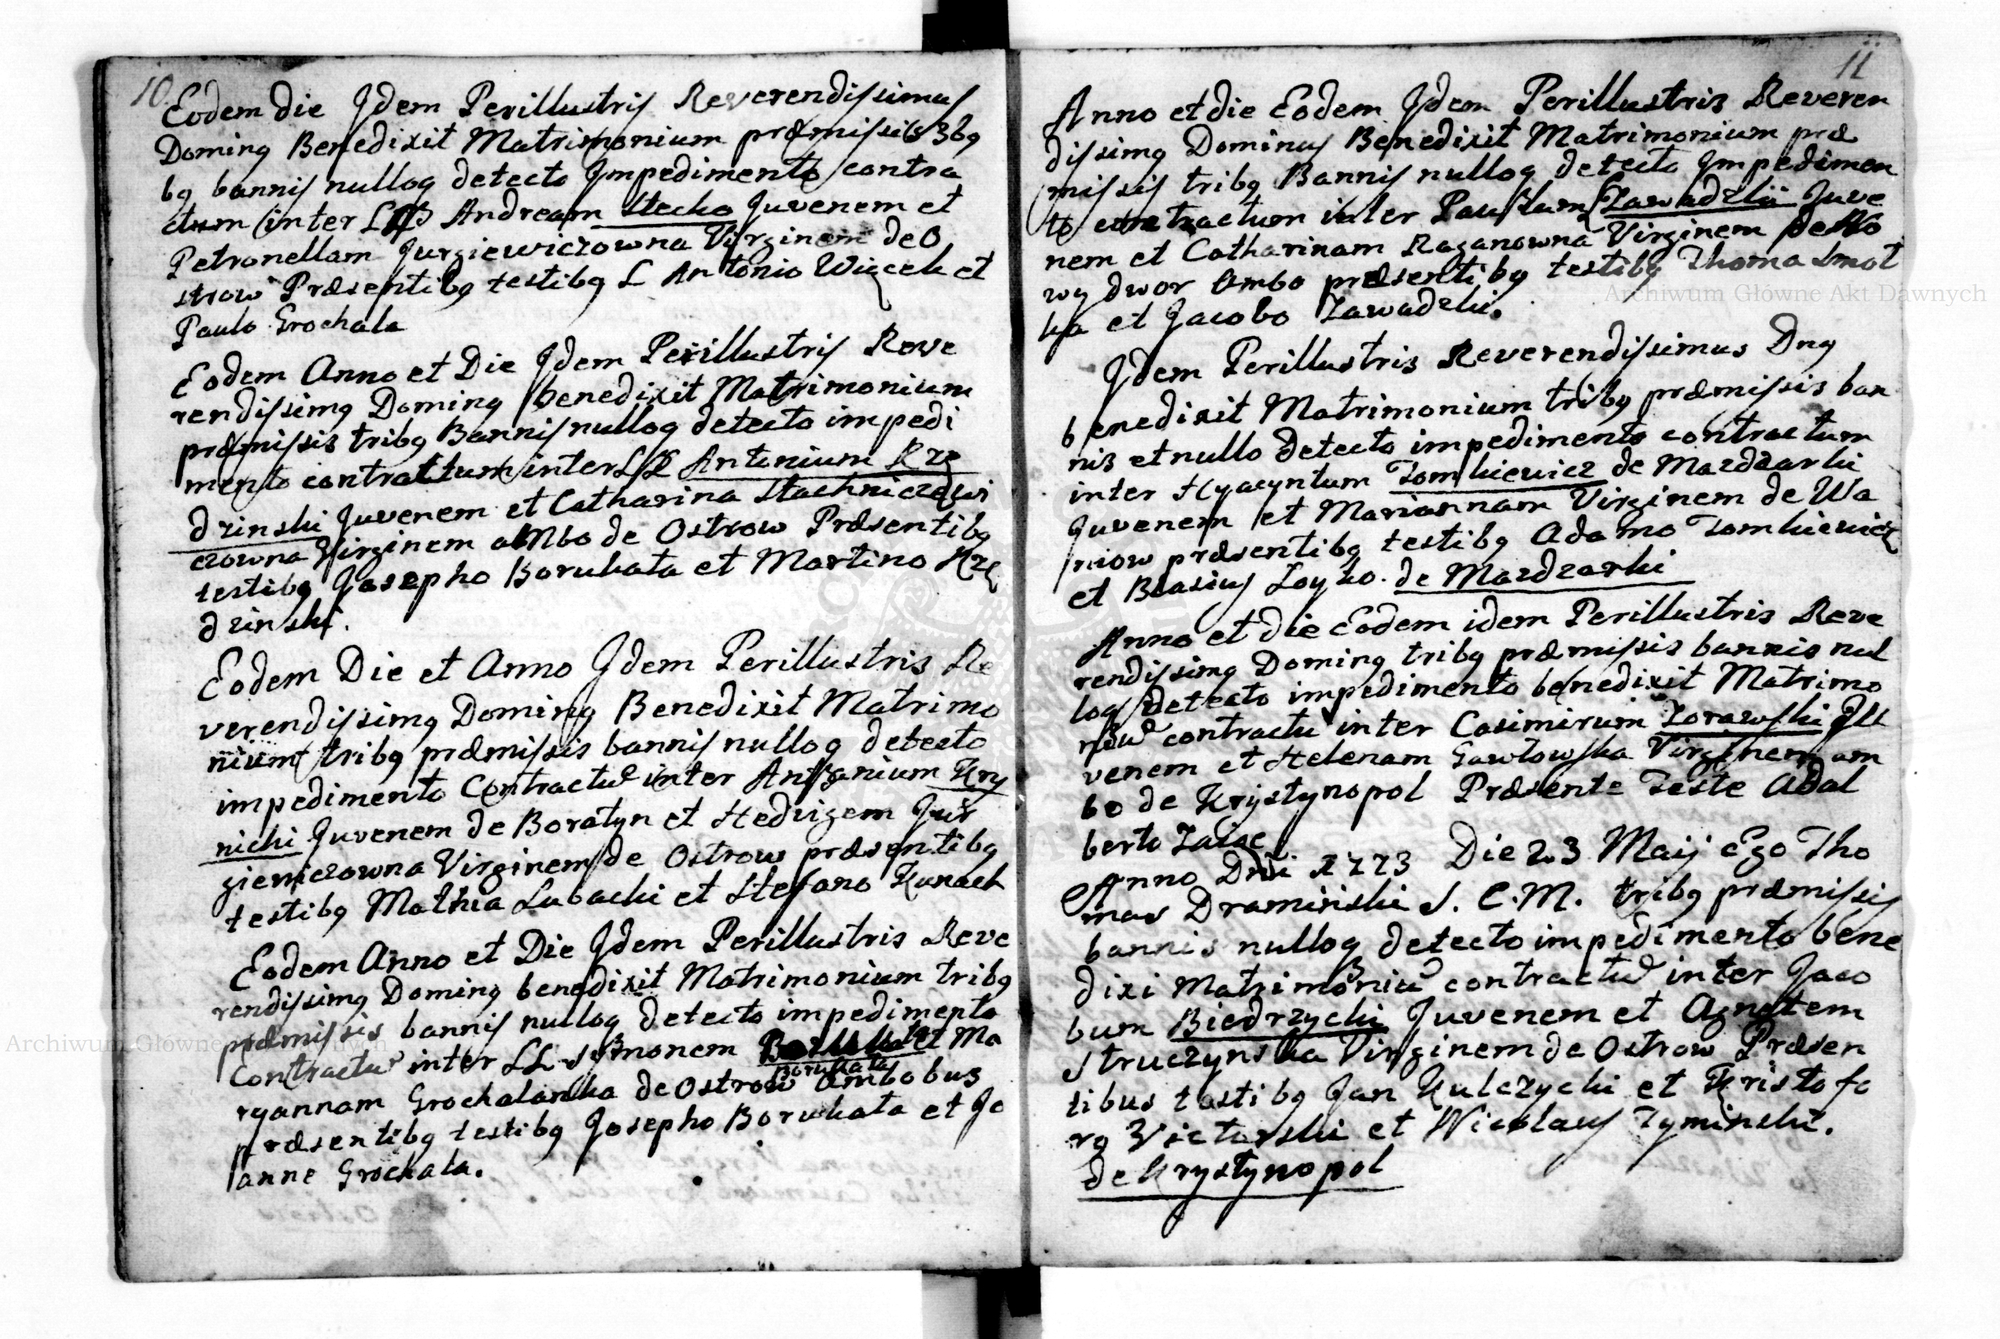 10.
Eodem die Jdem Perillustris Reverendissimus
Doming Benedixit Matrimonium præmissis 3bg
bg bannis nullog detecto Jmpedimento contra
ctum inter LL Andream Stecko Juvenem et
Petronellam Jurgiewiczowna Virginem de O
strow Præsentibg testibg L Antonio Więcek et
Paulo Grochala
Eodem Anno et Die Jdem Perillustris Reve
rendissimg Doming benedixit Matrimonium
præmissis tribg Bannis nullog detecto impedi
mento contractum inter LL Antonium Krzę
dzinski Juvenem et Catharina Stachniczęwi
czowna Virginem ambo de Ostrow Præsentibg
testibg Josepho Borukata et Martino Krzę
dzinski.
Eodem Die et Anno Jdem Perillustris Re
verendissimg Doming Benedixit Matrimo
nium tribg præmissis bannis nullog detecto
impedimento Contractu inter Antonium Kry
nicki Juvenem de Boratyn et Hedvigem Jur
giewiczowna Virginem de Ostrow præsentibg
testibg Mathia Lubacki et Stefano Kunach
Eodem Anno et Die Jdem Perillustris Reve
rendissimg Doming benedixit Matrimonium tribg
præmissis bannis nullog detecto impedimento
Contractu inter LL Symonem et Ma
Borukata
ryannam Grochalanka de Ostrow Ambobus
præsentibg testibg Josepho Borukata et Jo
anne Grochala.
11
Anno et die Eodem Jdem Perillustris Reveren
dissimg Dominus Benedixit Matrimonium præ
missis tribg Bannis nullog detecto Jmpedimen
to contractum inter Paulum Zawadzki Juve
nem et Catharinam Kazanowna Virginem de No
wy dwor Ambo præsentibg testibg Thoma Smot
ka et Jacobo Zawadzki.
Jdem Perillustris Reverendissimus Dng
benedixit Matrimonium tribg præmissis ban
nis et nullo detecto impedimento contractum
inter Hyacyntum Tomkiewicz de Mazdzarki
Juvenem et Mariannam Virginem de Wa
niow præsentibg testibg Adamo Tomkiewicz
et Blasius Zoyko. de Mazdzarki
Anno et die Eodem idem Perillustris Reve
rendissimg Doming tribg præmissis bannis nul
log detecto impedimento benedixit Matrimo
niu contractu inter Casimirum Zorawski Ju
venem et Helenam Gawłowska Virginem am
bo de Krystynopol Præsente Teste Adal
berto Zaiąc
Anno Dni 1773 Die 23 Maij Ego Tho
mas Dramiński S. C. M. tribg præmissis
bannis nullog detecto impedimento bene
dixi Matrimoniu contractu inter Jaco
bum Biedrzycki Juvenem et Agnetem
Struczynska Virginem de Ostrow Præsen
tibus testibg Jan Kulczycki et Kristofo
rg Wictorski et Wicolaus Tyminski.
de Krystynopol
Archiwum Główne Akt Dawnych
Archiwum Główne Akt Dawnych